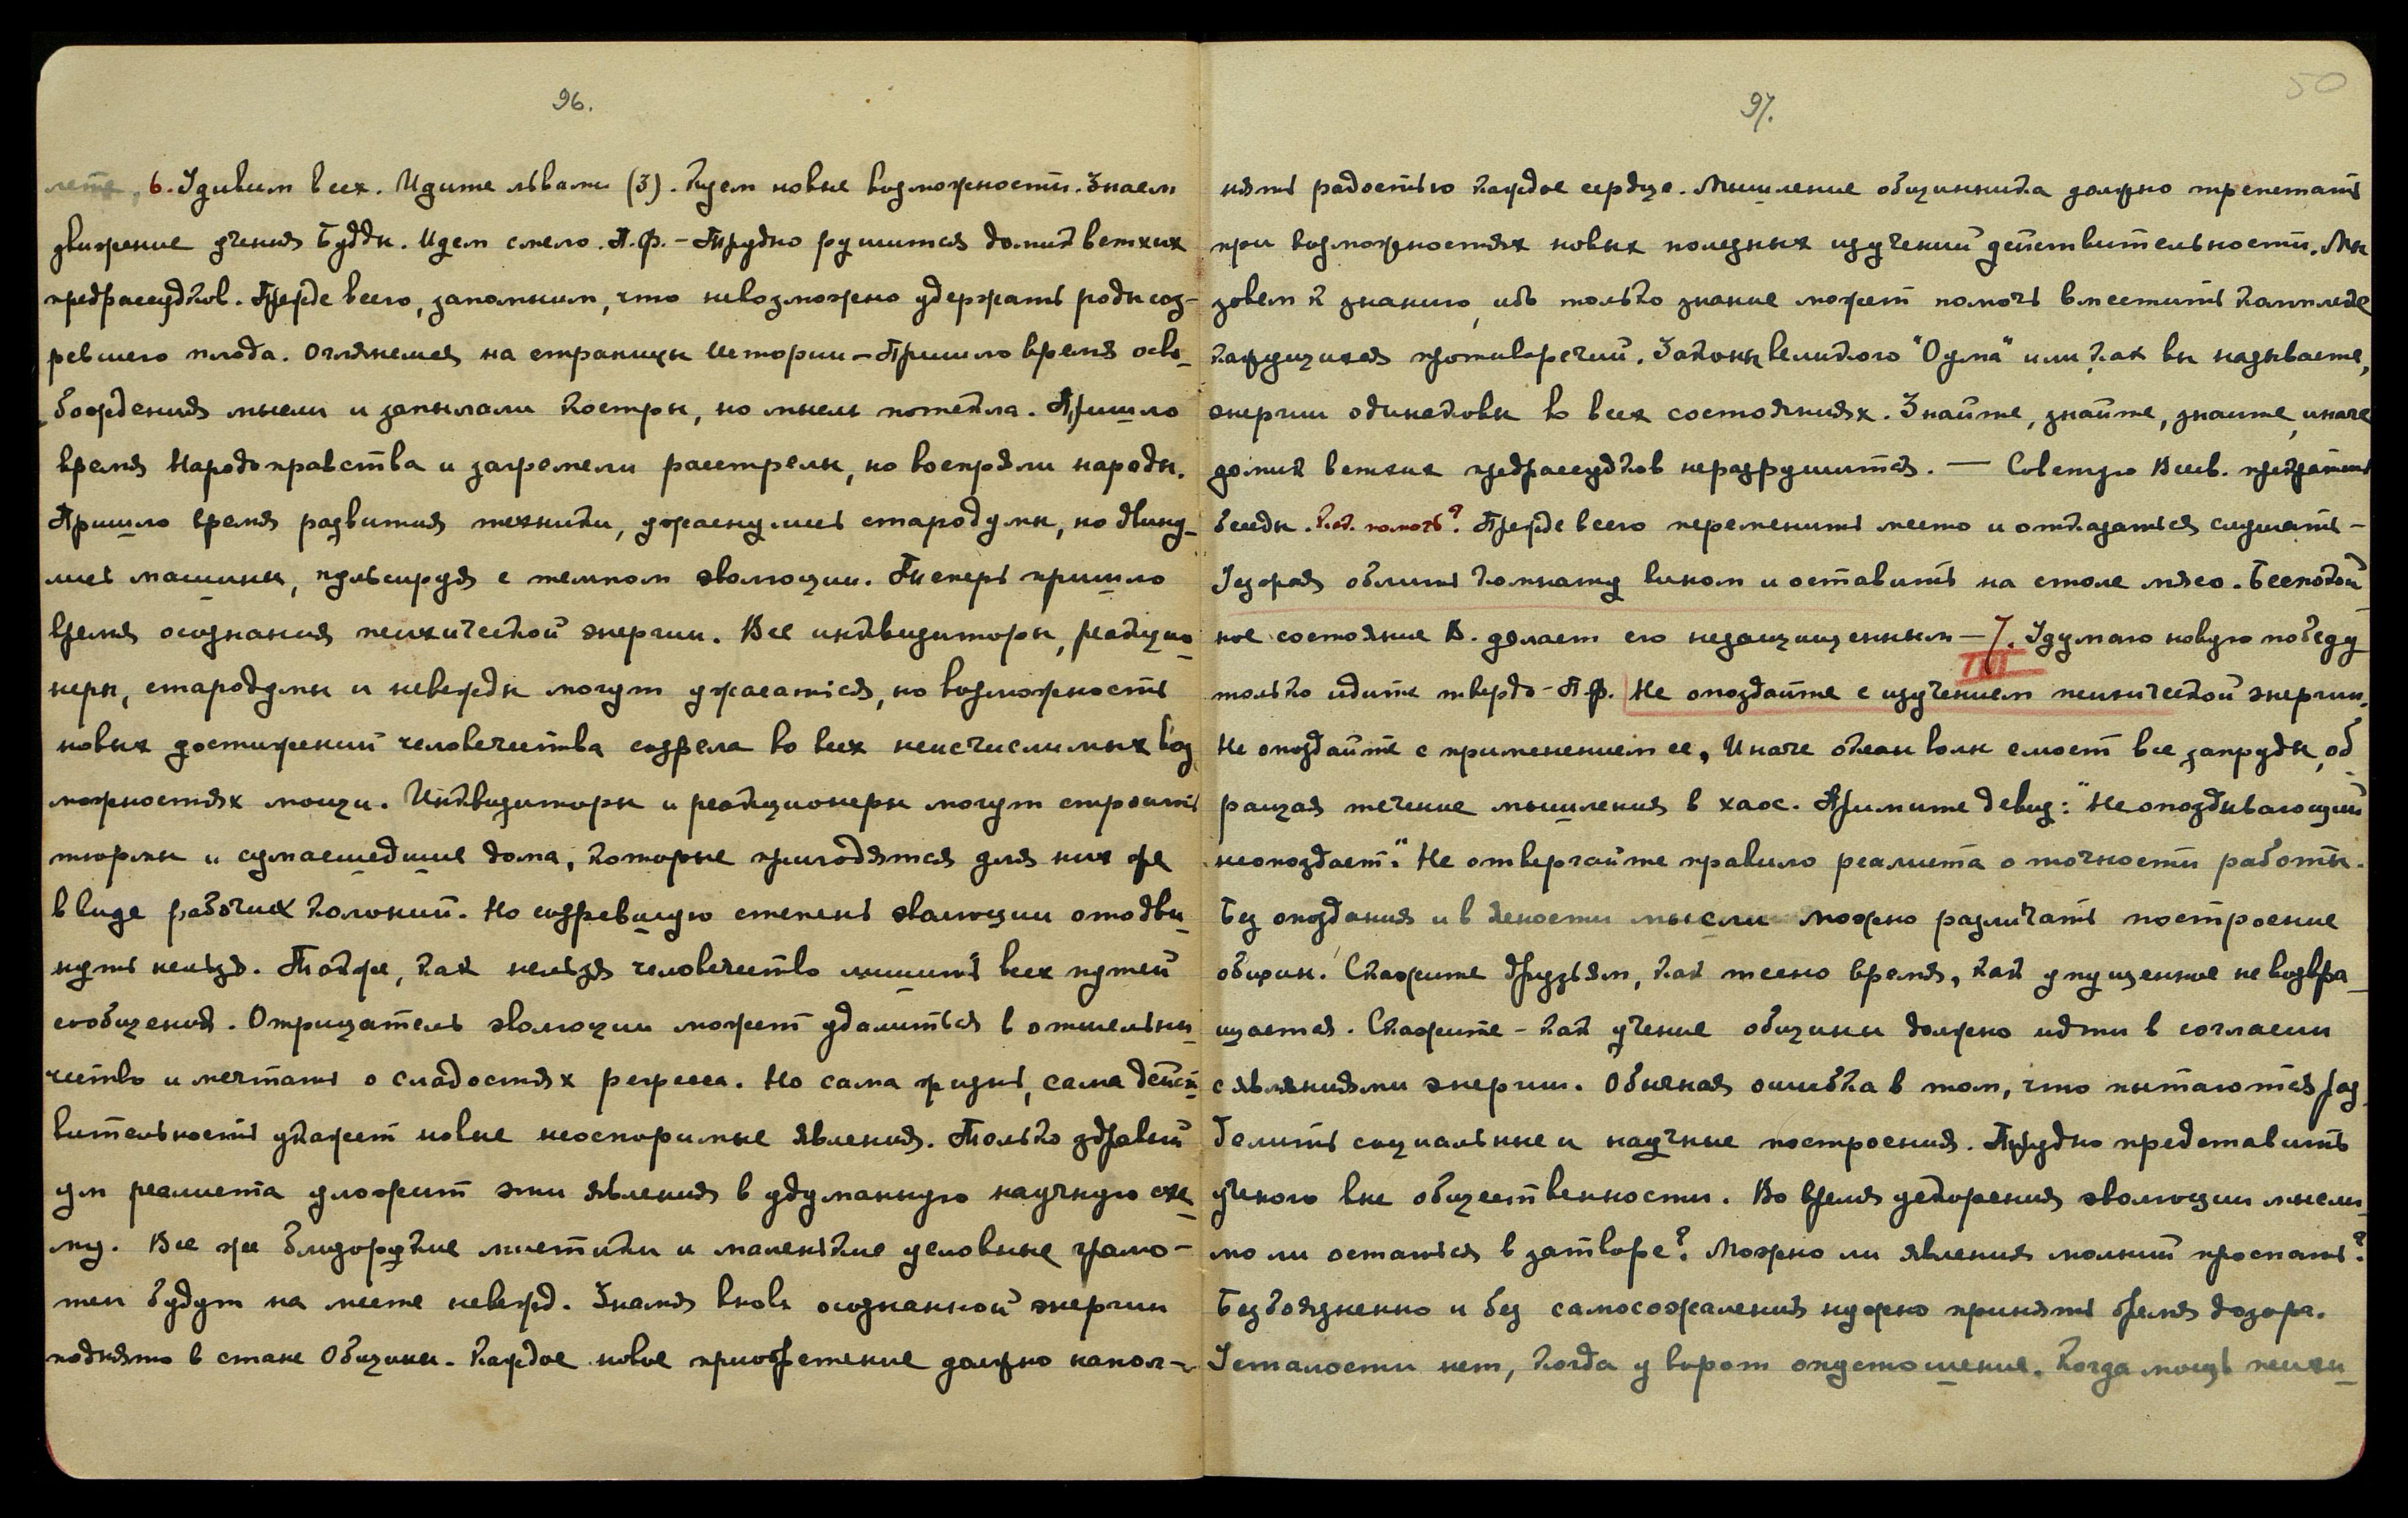 96.
лете, 6. Удивим всех. Идите львами (3). Куем новые возможности. Знаем
движение учения Будды. Идем смело. П.Ф. – Трудно рушится домик ветхих
предрассудков. Прежде всего, запомним, что невозможно удержать роды соз-
ревшего плода. Оглянемся на страницы Истории – Пришло время осво-
бождения мысли и запылали костры, но мысль потекла. Пришло
время Народоправства и загремели расстрелы, но воспряли народы.
Пришло время развития техники, ужаснулись стародумы, но двину-
лись машины, пульсируя с темпом эволюции. Теперь пришло
время осознания психической энергии. Все инквизиторы, реакцио-
неры, стародумы и невежды могут ужасаться, но возможность
новых достижений человечества созрела во всех неисчислимых воз
можностях мощи. Инквизиторы и реакционеры могут строить
тюрьмы и сумасшедшие дома, которые пригодятся для них же
в виде рабочих колоний. Но созревшую степень эволюции отодви
нуть нельзя. Также, как нельзя человечество лишить всех путей
сообщения. Отрицатель эволюции может удалиться в отшельни
чество и мечтать о сладостях регресса. Но сама жизнь, сама дейст
вительность укажет новые неоспоримые явления. Только здравый
ум реалиста уложит эти явления в удуманную научную схе
му. Все же близорукие мистики и маленькие условные грамо-
теи будут на месте невежд. Знамя вновь осознанной энергии
поднято в стане Общины. Каждое новое приобретение должно напол-
97.
50
нять радостью каждое сердце. Мышление общинника должно трепетать
при возможностях новых полезных изучений действительности. Мы
зовем к знанию, ибо только знание может помочь вместить комплекс
кажущихся противоречий. Законы великого "Оума" или, как вы называете,
энергии одинаковы во всех состояниях. Знайте, знайте, знайте, иначе
домик ветхих предрассудков неразрушится. — Советую Всев. прекратить
беседы. Как помочь? Прежде всего переменить место и отказаться слушать –
Уезжая облить комнату вином и оставить на столе мясо. Беспокой
ное состояние В. делает его незащищенным — 7. Удумаю новую победу
только идите твердо – П.Ф. Не опоздайте с изучением психической энергии.
Не опоздайте с применением ее, Иначе океан волн смоет все запруды, об
ращая течение мышления в хаос. Примите девиз: "Неопоздывающий
неопоздает." Не отвергайте правило реалиста о точности работы.
Без опоздания и в ясности мысли можно различать построение
общин. Скажите друзьям, как тесно время, как упущенное не возвра
щается. Скажите – как учение общины должно идти в согласии
с явлениями энергии. Обычная ошибка в том, что пытаются раз
делить социальные и научные построения. Трудно представить
ученого вне общественности. Во время ускорения эволюции мысли
мо ли остаться в затворе? Можно ли явления молний проспать?
Безбоязненно и без самосожаления нужно принять бремя дозора.
Усталости нет, когда у ворот опустошение. Когда мощь психи